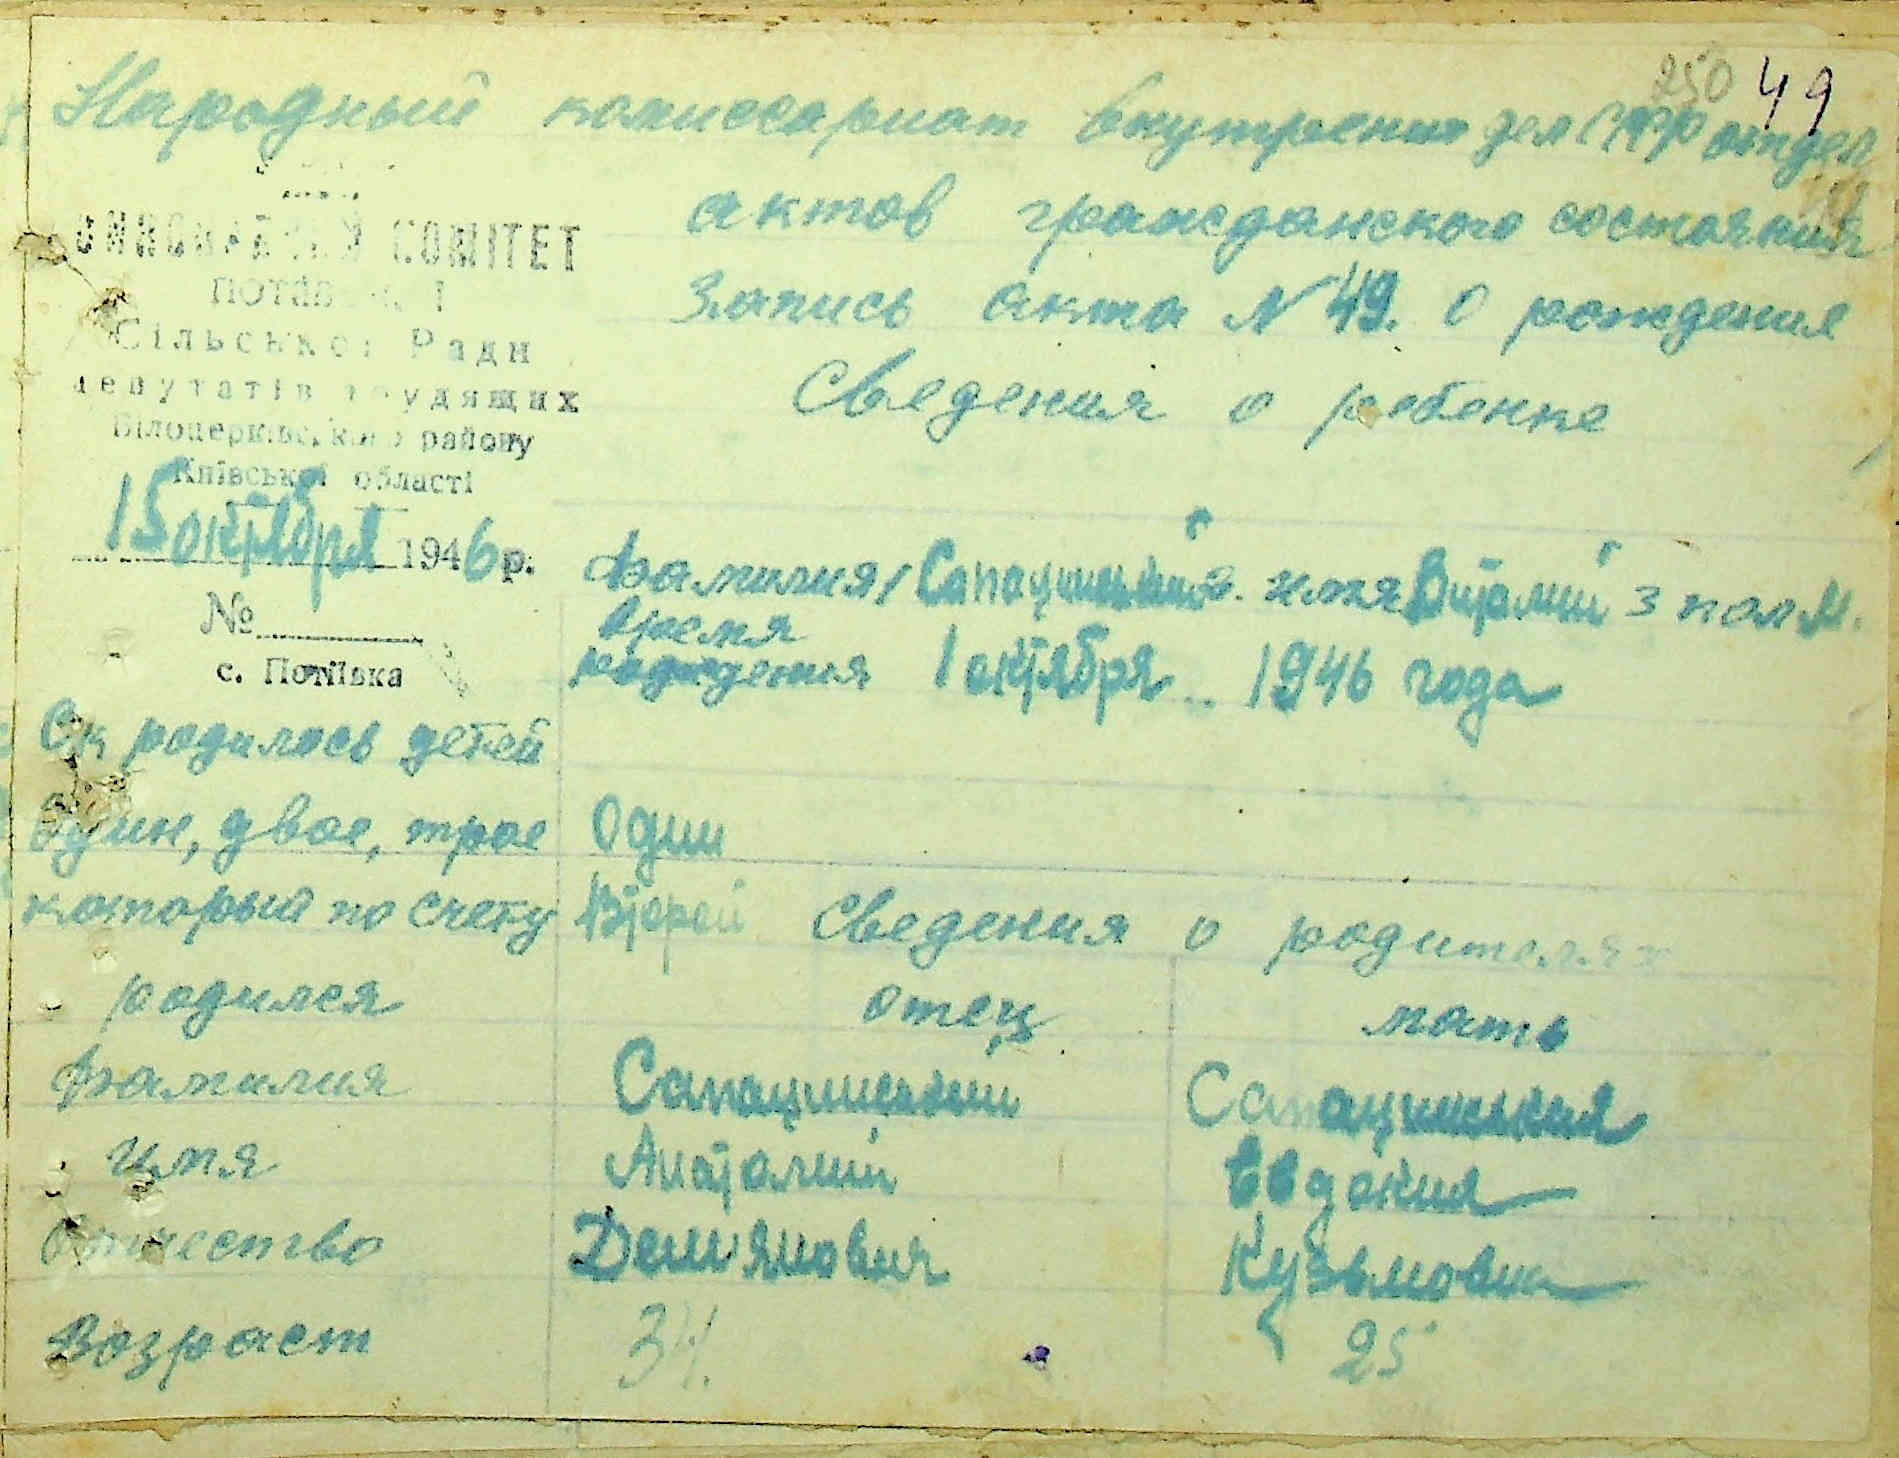 250 49
Народный комиссариат внутрених дел отдел
актов гражданского состояния
Запись акта N 49. о рождения
Сведения о ребенке
КОМІТЕТ
Сільської Ради
депутатів трудящих
Білоцерківського району
Київської області
15 октября 1946 р.
№
с. Потіївка
1 Фамилия / Сапацинський 2. имя Виталий 3 пол М.
время
рождения 1 октября 1946 года
Ск родилось детей
Один, двое, трое Один
который по счету Второй Сведения о родителях
родился отец мать
Фамилия Сапацинський Сапацинськия
имя Анатолий Евдокия
Отчество Демянович Кузьмовна
Возраст 34. 25